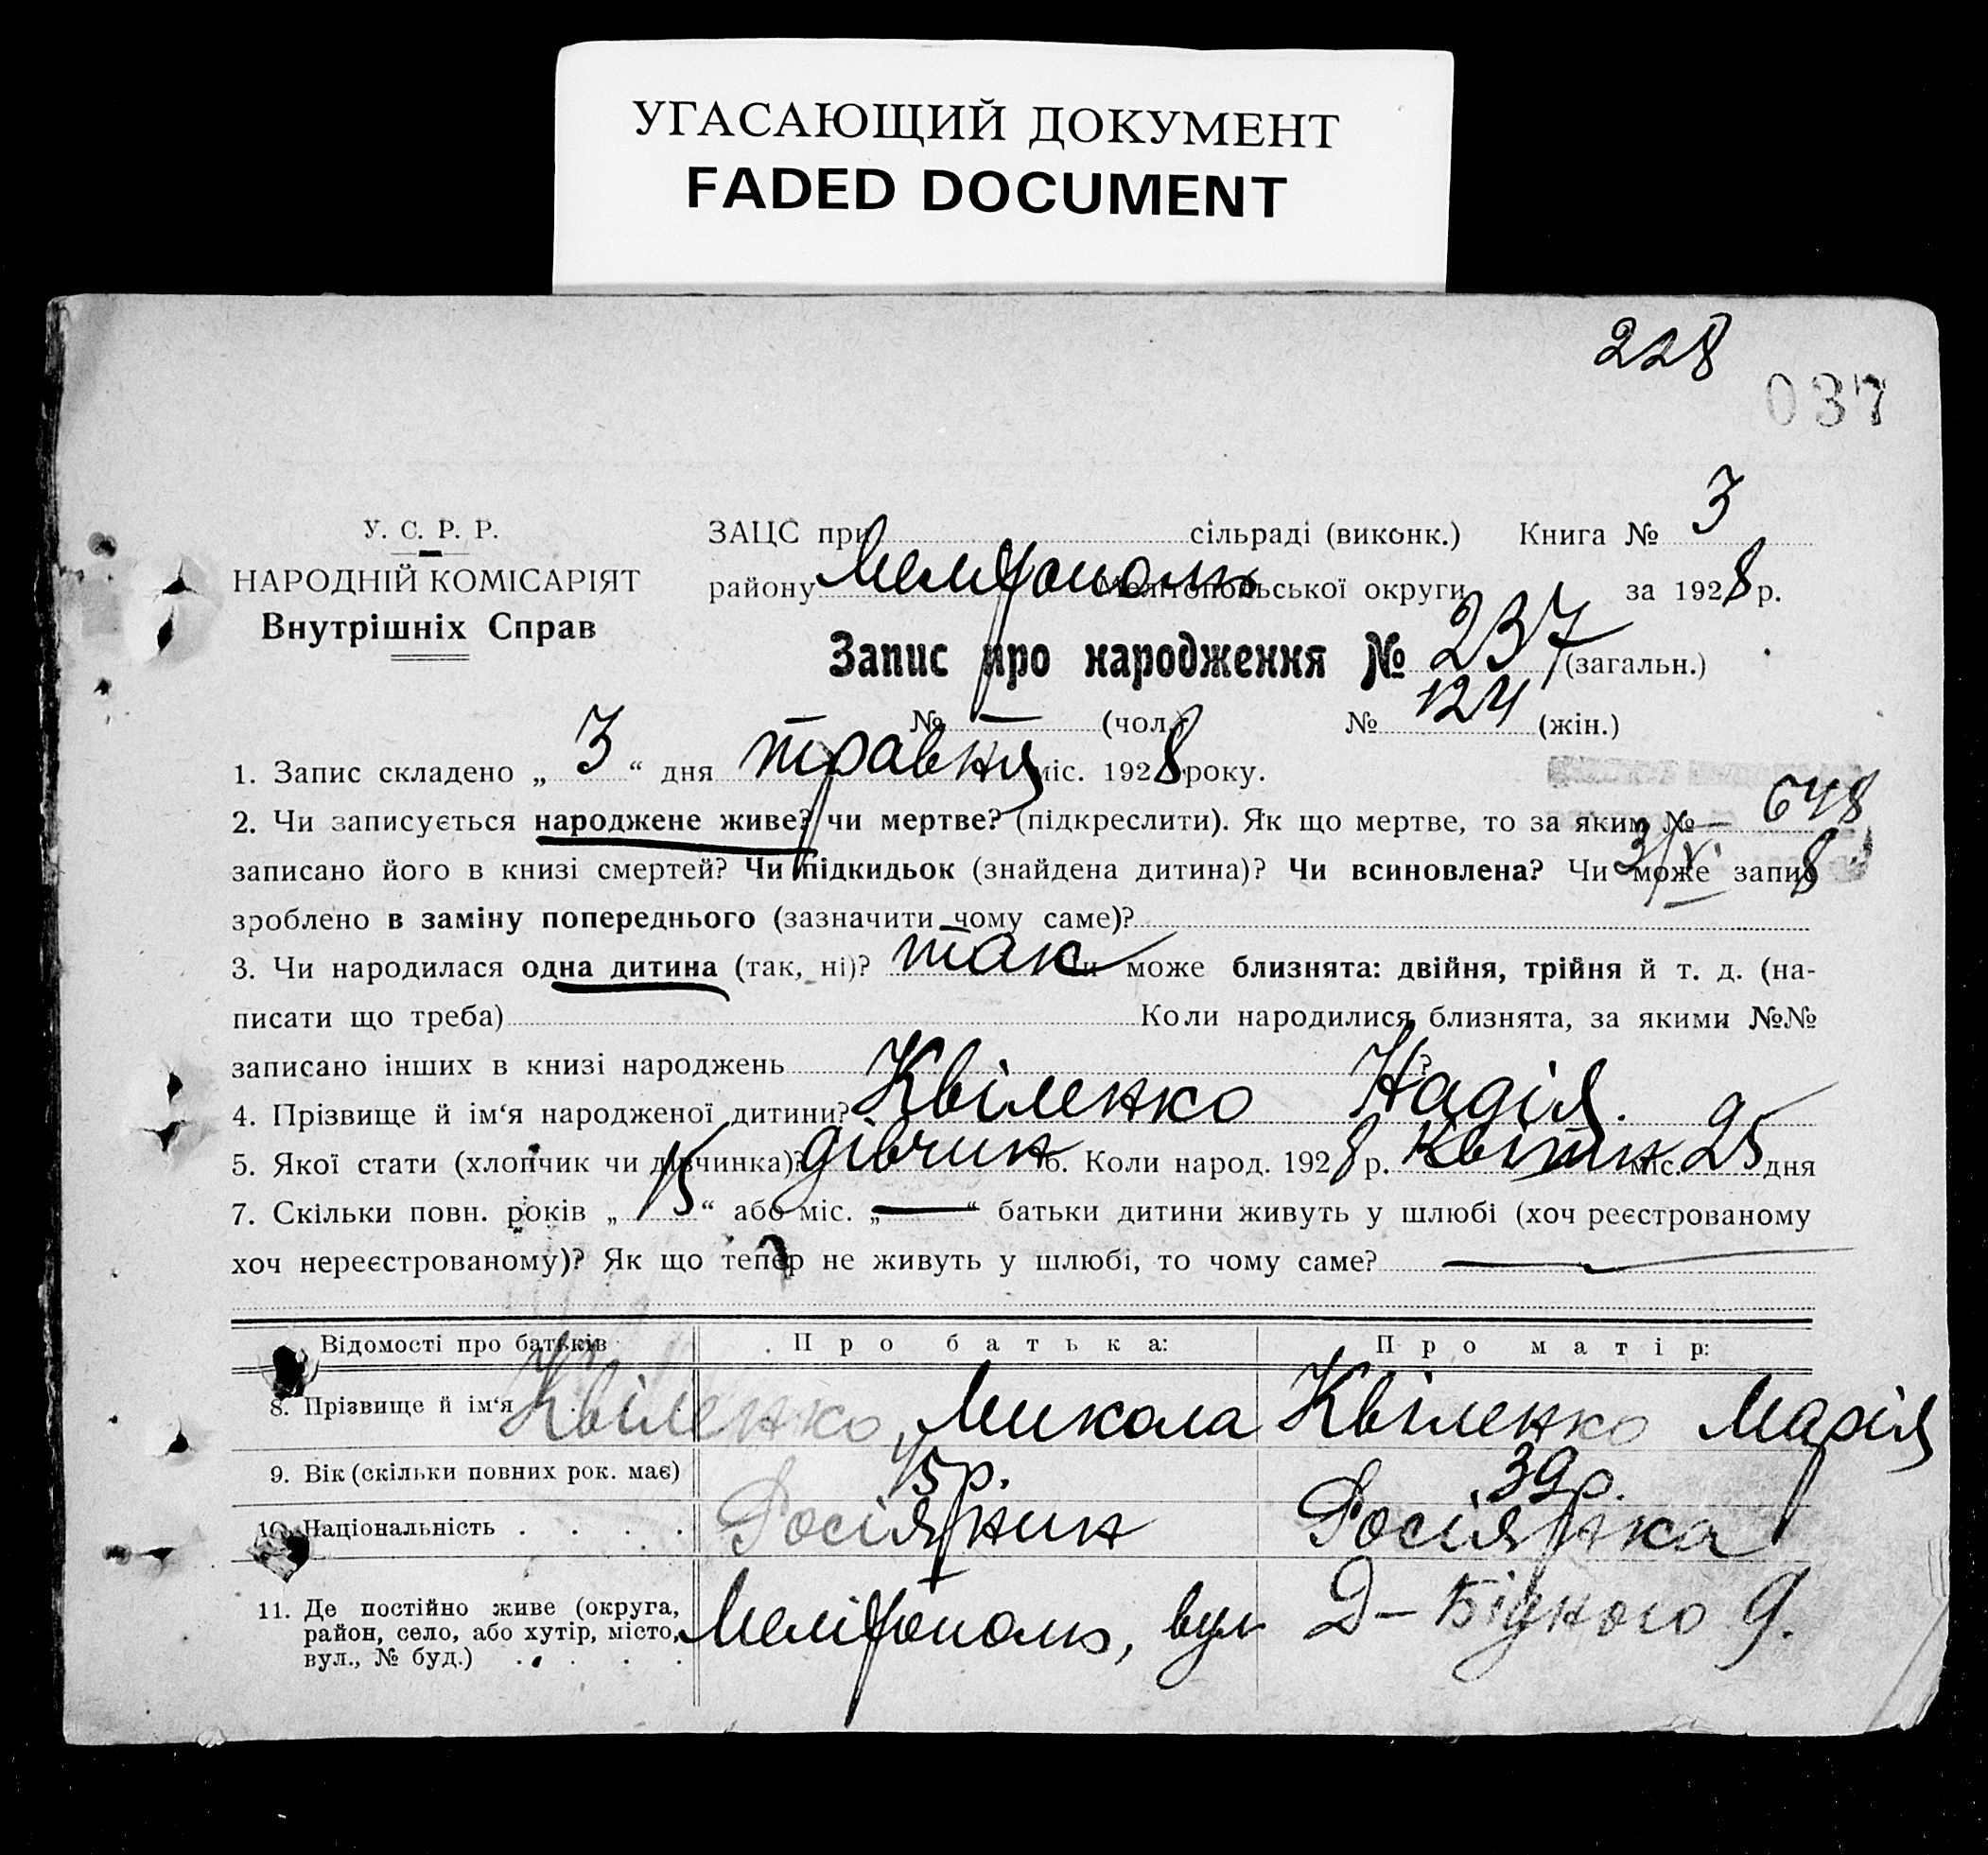 УГАСАЮЩИЙ ДОКУМЕНТ
FADED DOCUMENT
228
037
У. С. Р. Р.
НАРОДНІЙ КОМІСАРІЯТ
Внутрішніх Справ
ЗАЦС при сільраді (виконк.) Книга № 3
району Мелітополь Мелітопольської округи за 1928 р.
Запис про народження № 237 (загальн.)
№ — (чол.) № 124 (жін.)
1. Запис складено „ 3 “ дня травня міс. 1928 року.
2. Чи записується народжене живе? чи мертве? (підкреслити). Як що мертве, то за яким № — 648
записано його в книзі смертей? Чи підкидьок (знайдена дитина)? Чи всиновлена? Чи може запис 3/V 8
зроблено в заміну попереднього (зазначити чому саме)?
3. Чи народилася одна дитина (так, ні)? так Чи може близнята: двійня, трійня й т. д. (на-
писати що треба) Коли народилися близнята, за якими №№
записано інших в книзі народжень ?
4. Прізвище й ім‘я народженої дитини? Квіленко Надія.
5. Якої стати (хлопчик чи дівчинка)? дівчин 6. Коли народ. 1928 р. квітн міс. 25 дня
7. Скільки повн. років „ 15 “ або міс. „ — “ батьки дитини живуть у шлюбі (хоч реєстрованому
хоч нереєстрованому)? Як що тепер не живуть у шлюбі, то чому саме? —
Відомості про батьків Про батька: Про матір:
8. Прізвище й ім‘я Квіленко Микола Квіленко Марія
9. Вік (скільки повних рок. має) 45р. 39р.
10. Національність . . . . Росіянин Росіянка
11. Де постійно живе (округа,
район, село, або хутір, місто,
вул., № буд.) . . . . Мелітополь, вул Д–Бідного 9.